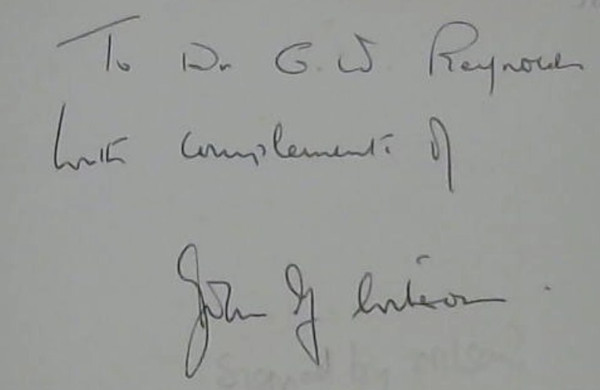 To Dr G.W Reynolds
with complements of
John G